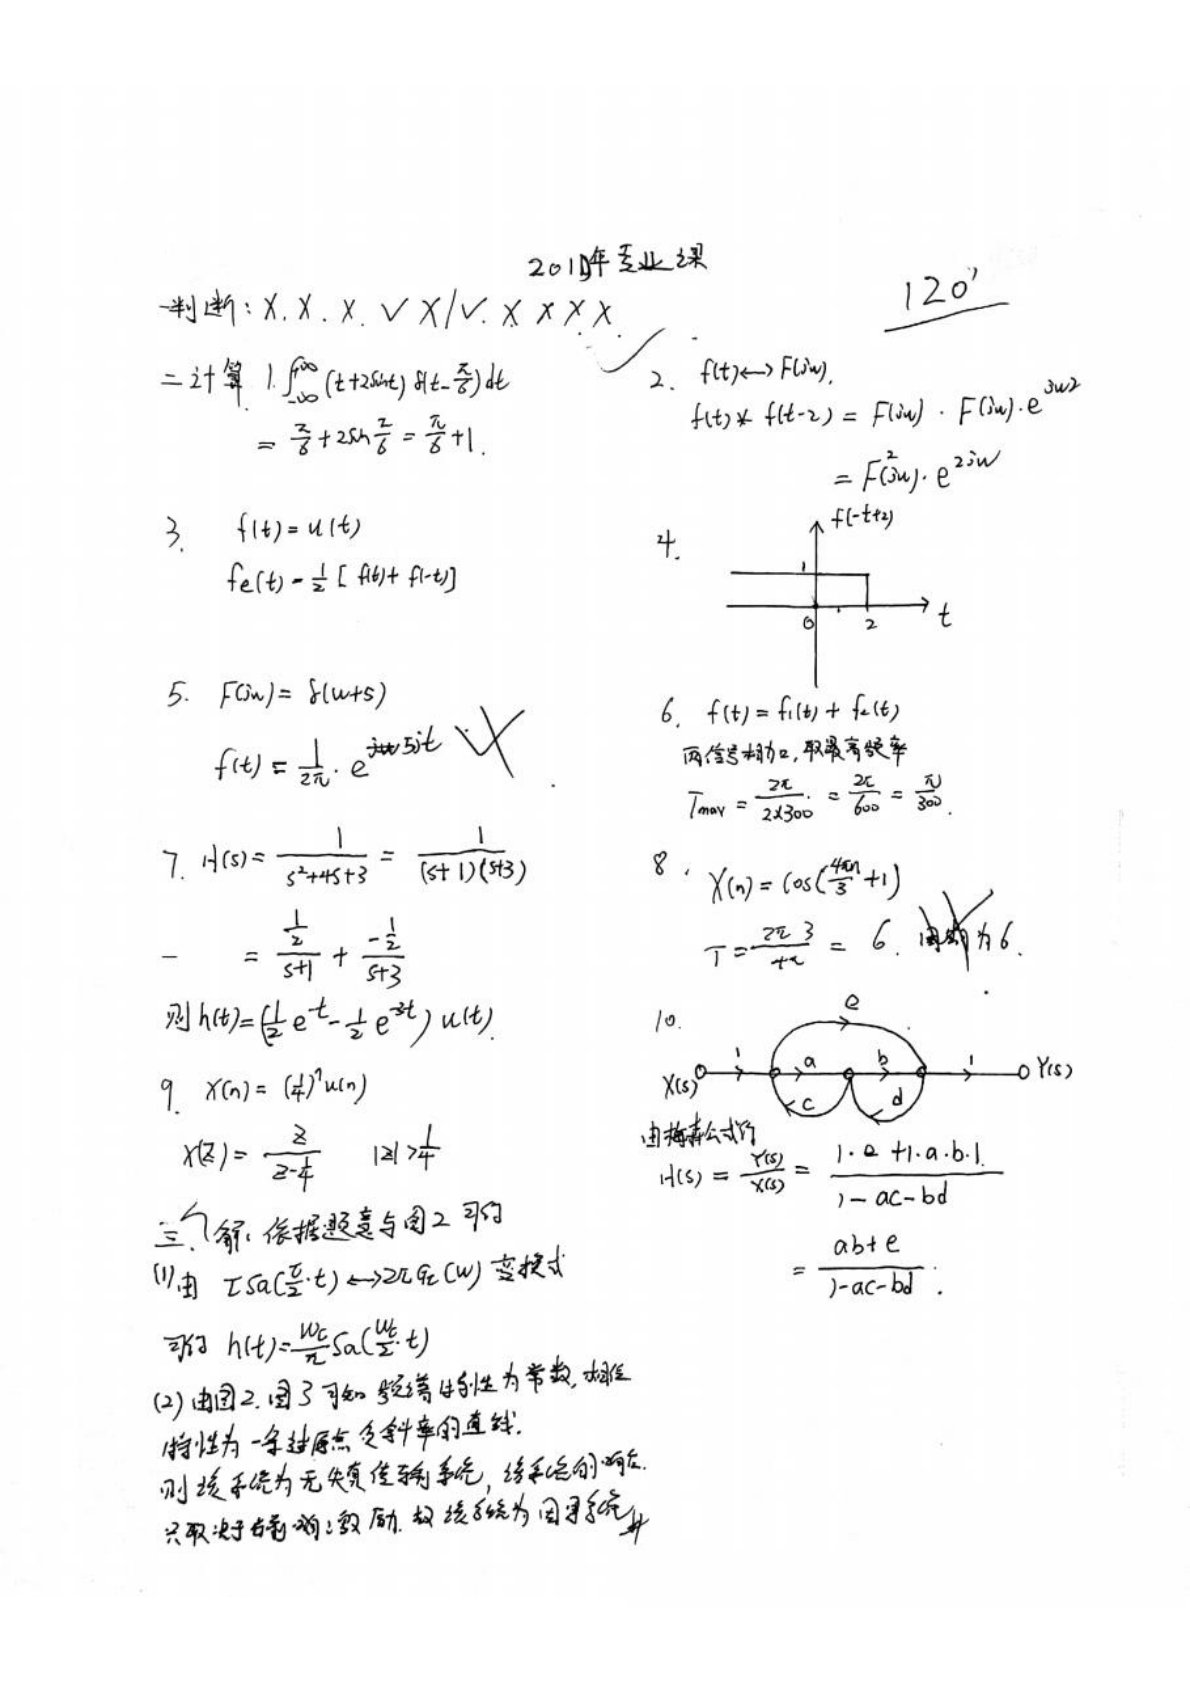 2019年专业课
120'
一判断: X. X. X. ✓ X/✓. X X X X
二计算 1. ∫_{-∞}^{+∞} (t+2sint) δ(t-π/6) dt
= π/6 + 2sin π/6 = π/6 + 1.
2. f(t)<->F(jw).
f(t)* f(t-2) = F(jw) · F(jw)·e^{jw2}
= F²(jw)·e^{2jw}
3. f(t) = u(t)
fe(t) = 1/2 [ f(t)+ f(-t)]
4. f(-t+2)
1
0 2 t
5. F(jw) = δ(w+5)
f(t) = 1/2π · e^{5jt}
6. f(t) = f1(t) + f2(t)
两信号相加, 取最高频率
Tmax = 2π/(2x300) = 2π/600 = π/300.
7. H(s) = 1/(s²+4s+3) = 1/((s+1)(s+3))
= (1/2)/(s+1) + (-1/2)/(s+3)
则 h(t)=(1/2 e^{-t} - 1/2 e^{-3t}) u(t).
8. X(n) = cos(4πn/3 +1)
T = 2π 3/4π = 6. 周期为6.
9. X(n) = (1/4)^n u(n)
X(Z) = Z/(Z-1/4) |z|>1/4
10.
e
X(s) 1 a b 1 Y(s)
c d
由梅森公式得
H(s) = Y(s)/X(s) = (1·e+1·a·b·1)/(1-ac-bd)
= (ab+e)/(1-ac-bd).
三、解: 依据题意与图2可得
(1)由 τSa(τ/2·t)<->2πGτ(w) 变换式
可得 h(t)=wc/π Sa(wc/2·t)
(2) 由图2.图3可知 频谱特性为常数, 相位
特性为一条过原点负斜率的直线.
则该系统为无失真传输系统, 该系统的响应
只取决于激励. 故该系统为因果系统